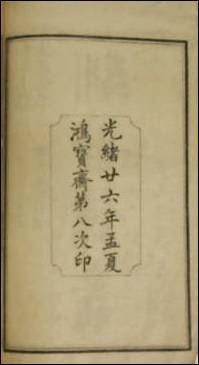 光緒廿六年孟夏
鴻寶齋第八次印